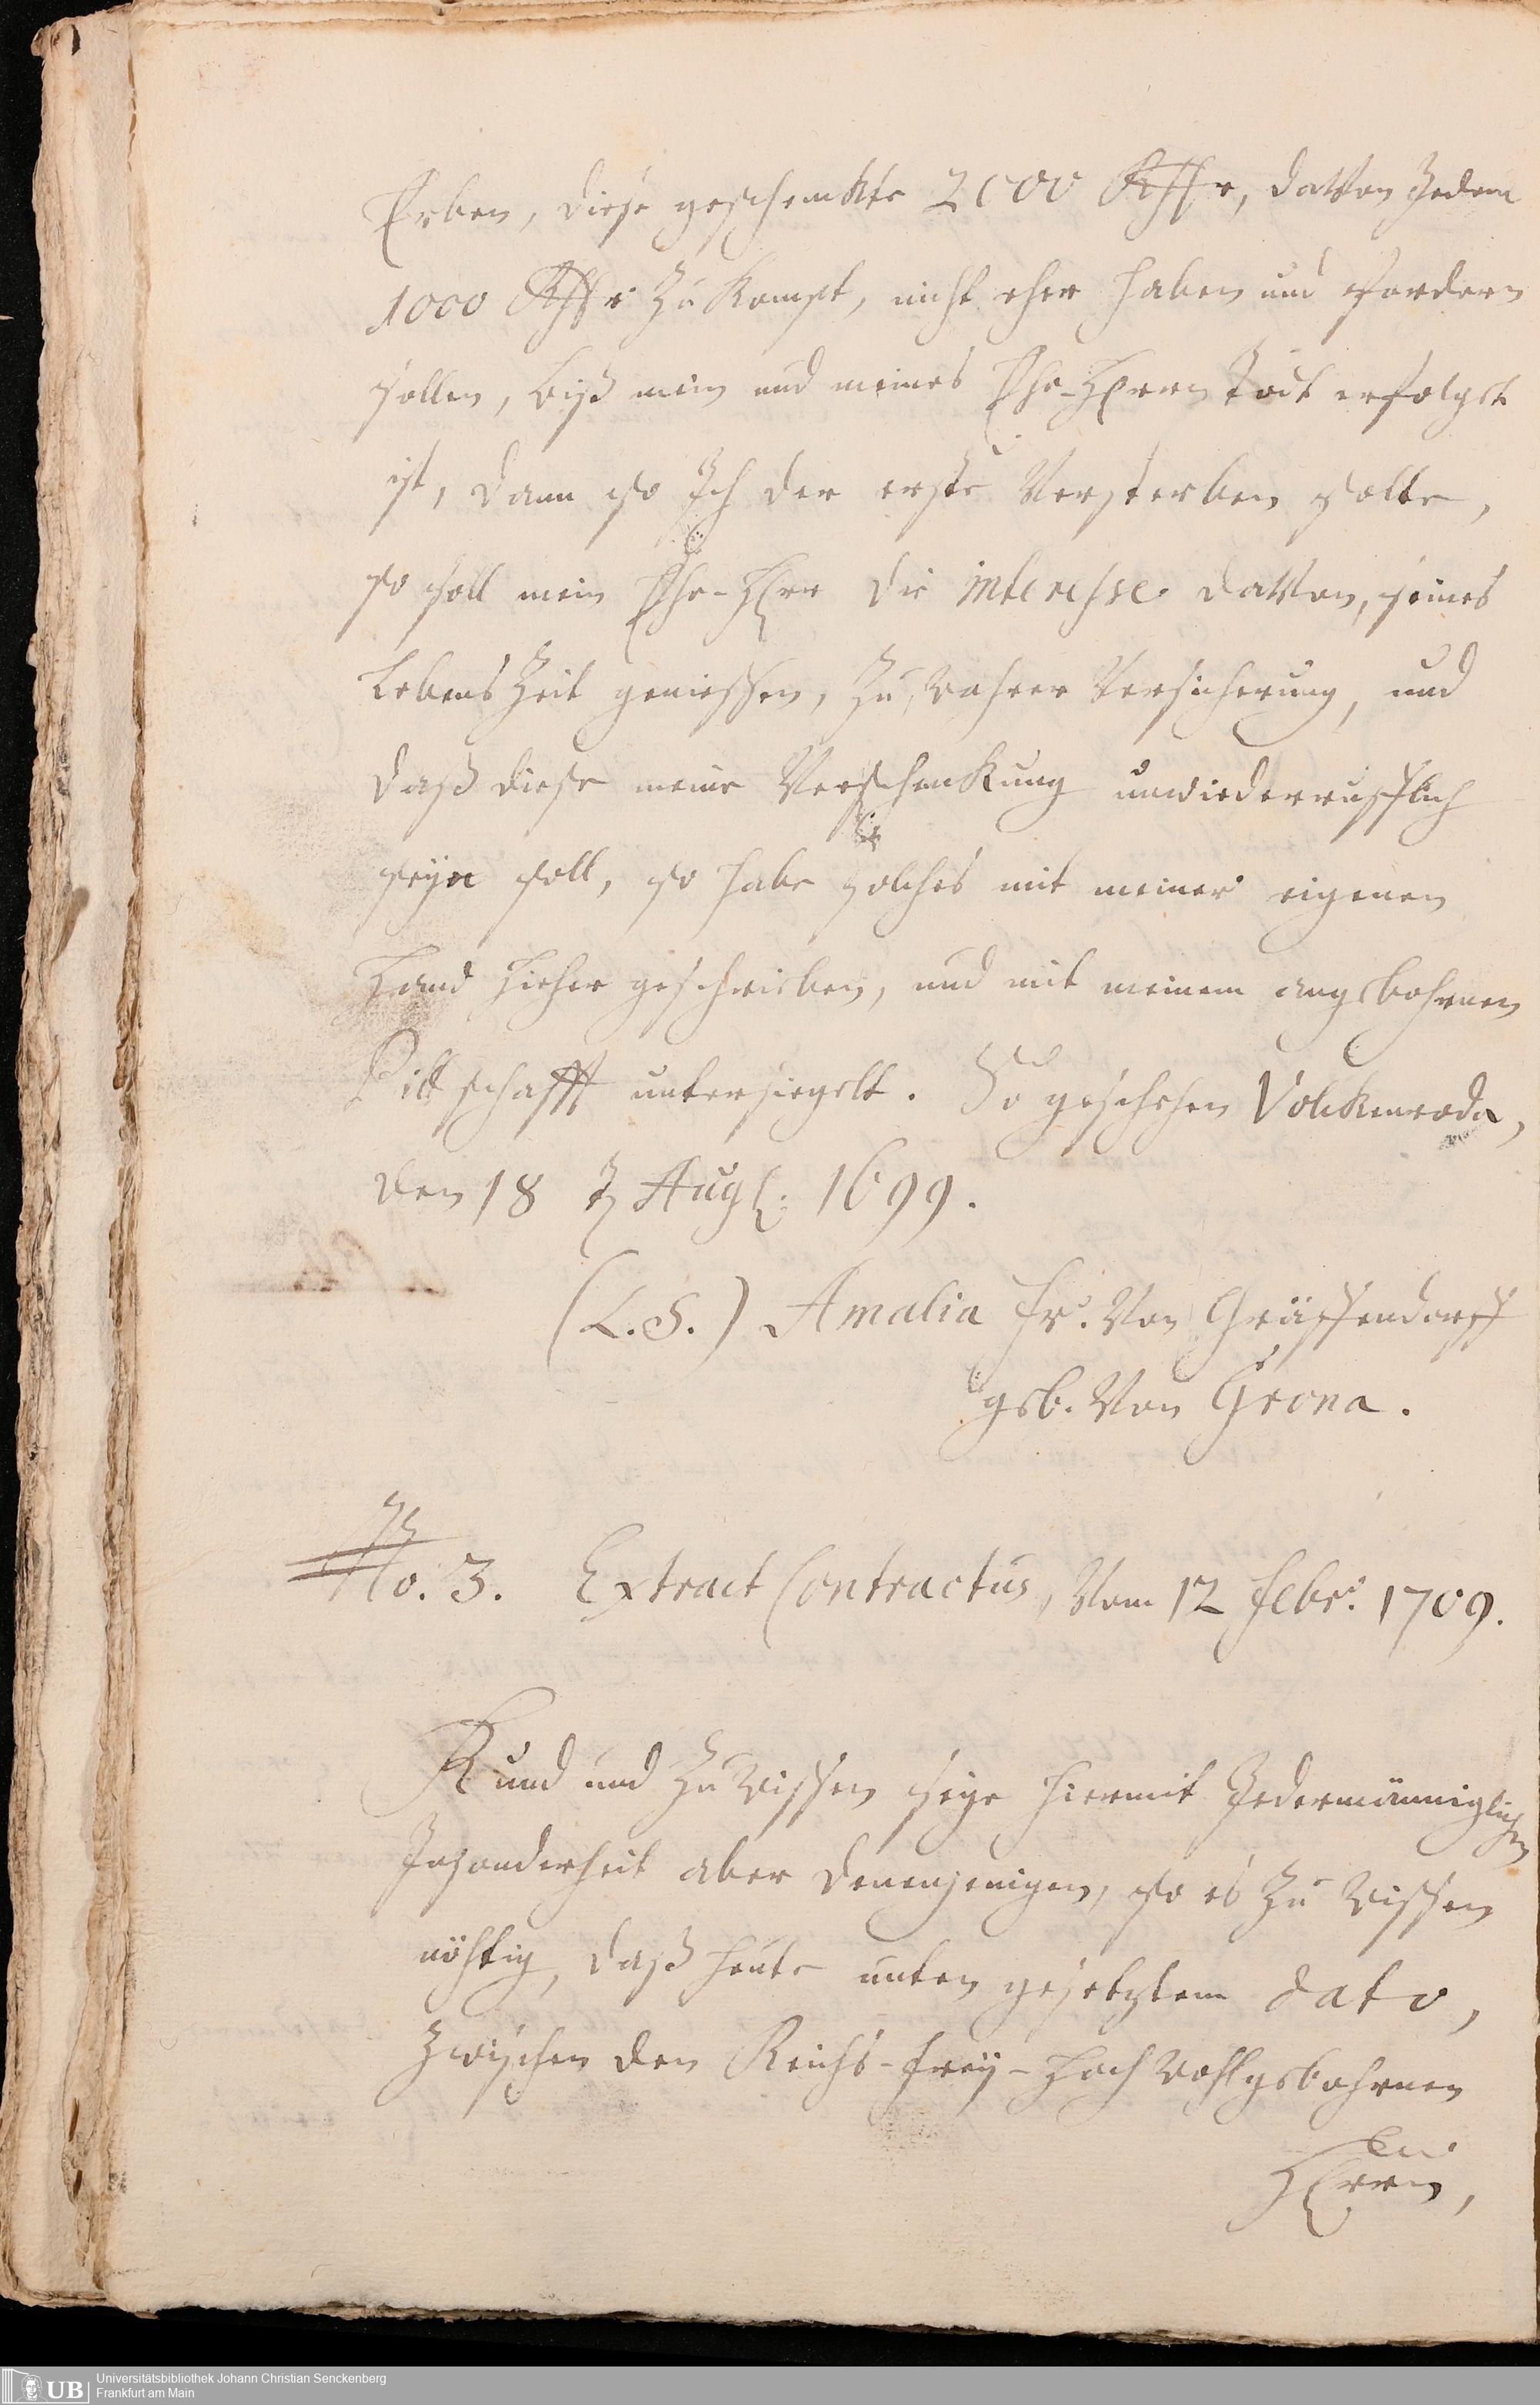 Erben, diese geschenckte 2000 Rthlr, davon Jedem
1000 Rthlr zu kompt, nicht eher haben und fordern
sollen, biß mein und meines Ehe-HErrn Todt erfolgt
ist, dann so Ich der erste Versterben solte,
so soll mein Ehe-HErr die interesse davon, seines
Lebens Zeit geniessen, zu wahrer Versicherung, und
daß diese meine Verschenckung unwiederrufflich
seyn soll, so habe solches mit meiner eigenen
Hand hieher geschrieben, und mit meinem angebohrnen
Pittschafft untersiegelt. So geschehen Volckenroda,
den 18 Aug: 1699.
(L.S.) Amalia Fr. von Gräffendorff
geb. von Grona.
No. 3. Extract Contractus, vom 12 Febr. 1709.
Kund und zu wissen seye hiermit Jedermänniglichen
Insonderheit aber denenjenigen, so es zu wissen
nöhtig, daß heute unten gesetztem dato,
zwischen den Reichs-Frey-Hoch wohlgebohrnen
HErrn,
Universitätsbibliothek Johann Christian Senckenberg
Frankfurt am Main
UB